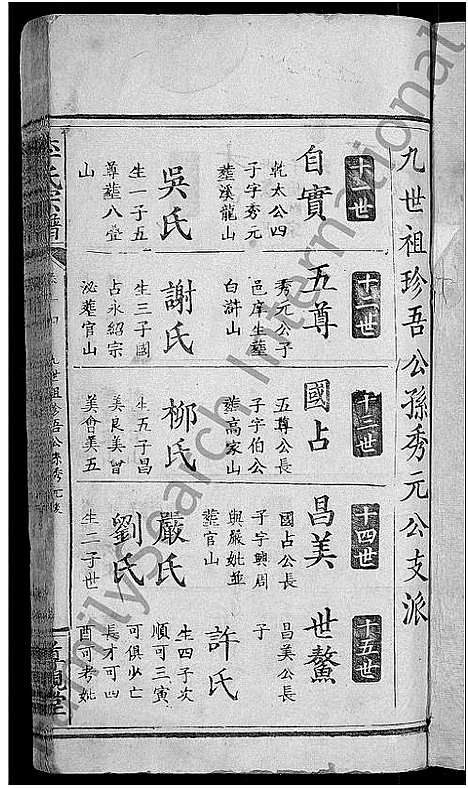 九世祖珍吾公孫秀元公支派
十一世
自實
乾太公四
子字秀元
葬溪龍山
吳氏
生一子五
尊葬八壹
山
十二世
五尊
秀元公子
邑庠生葬
白滸山
謝氏
生三子國
占永紹宗
泌葬官山
十三世
國占
五尊公長
子字伯公
葬高家山
柳氏
生五子昌
美良美曾
美會美五
十四世
昌美
國占公長
子字興周
與嚴妣並
葬官山
嚴氏
劉氏
生二子世
十五世
世鰲
昌美公長
子
許氏
生四子次
順可三寅
可俱少亡
長才可四
酉可考妣
李氏宗譜
九世祖珍吾公孫秀元後
FamilySearch International